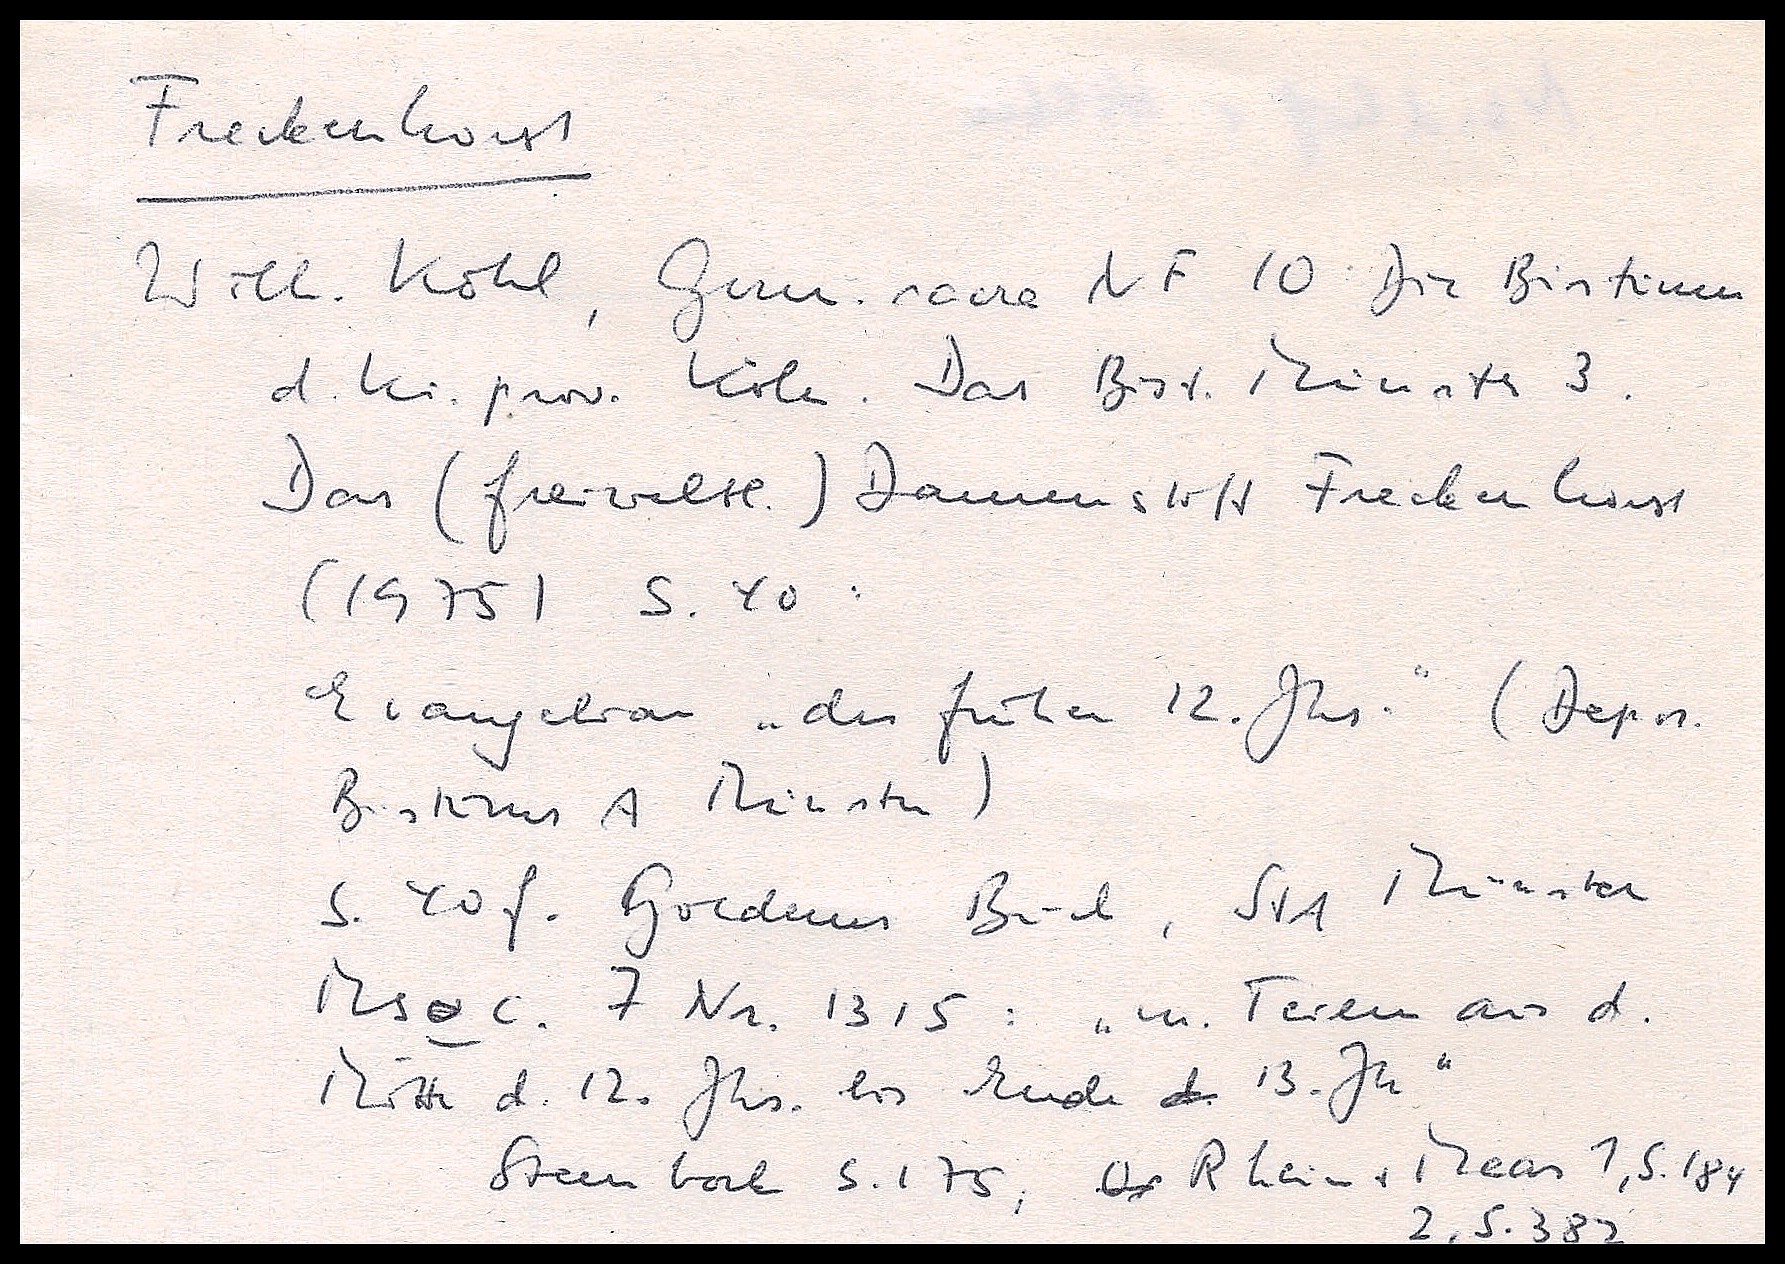 Freckenhorst
Wilh. Kohl, Germ. sacra NF 10 Die Bistümer
d. Ki. prov. Köln. Das Bist. Münster 3.
Das (freiweltl.) Damenstift Freckenhorst
(1975) S. 40:
Evangeliar „des frühen 12. Jhs." (Depos.
Bistums A Münster)
S. 40 f. Goldenes Buch, StA Münster
Msc. 7 Nr. 1315: „m. Teilen aus d.
Mitte d. 12. Jhs. bis Ende 13. Jh"
Steenbock S. 175, Rhein + Maas 1, S. 184
2, S. 382